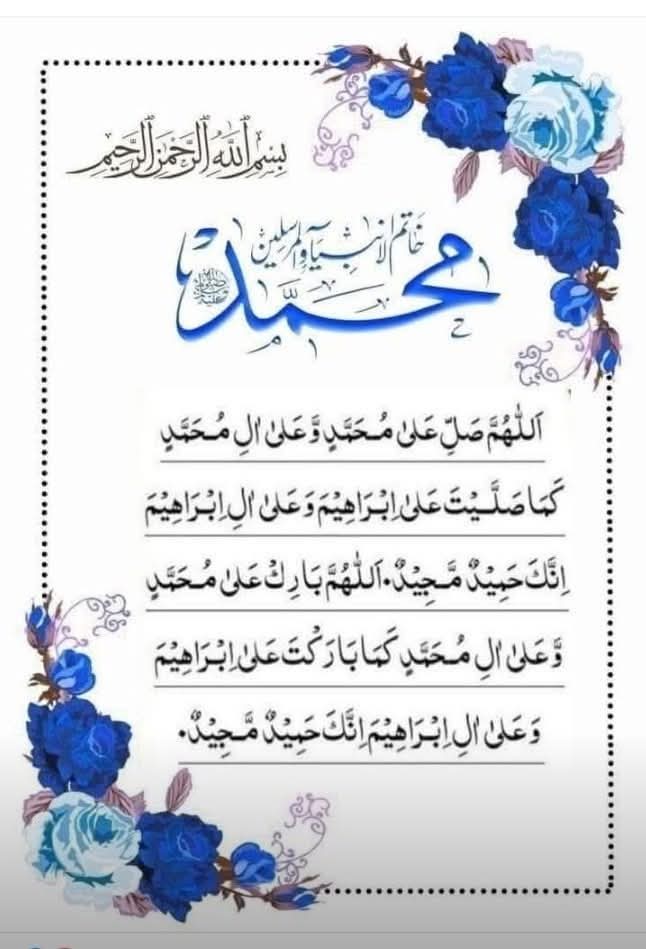 بِسْمِ ٱللَّٰهِ ٱلرَّحْمَٰنِ ٱلرَّحِيمِ
خاتم الانبیآء والمرسلین
محمد ﷺ
اَللّٰهُمَّ صَلِّ عَلٰى مُحَمَّدٍ وَّعَلٰى اٰلِ مُحَمَّدٍ
كَمَا صَلَّيْتَ عَلٰى اِبْرَاهِيْمَ وَعَلٰى اٰلِ اِبْرَاهِيْمَ
اِنَّكَ حَمِيْدٌ مَّجِيْدٌ۰اَللّٰهُمَّ بَارِكْ عَلٰى مُحَمَّدٍ
وَّعَلٰى اٰلِ مُحَمَّدٍ كَمَا بَارَكْتَ عَلٰى اِبْرَاهِيْمَ
وَعَلٰى اٰلِ اِبْرَاهِيْمَ اِنَّكَ حَمِيْدٌ مَّجِيْدٌ۰